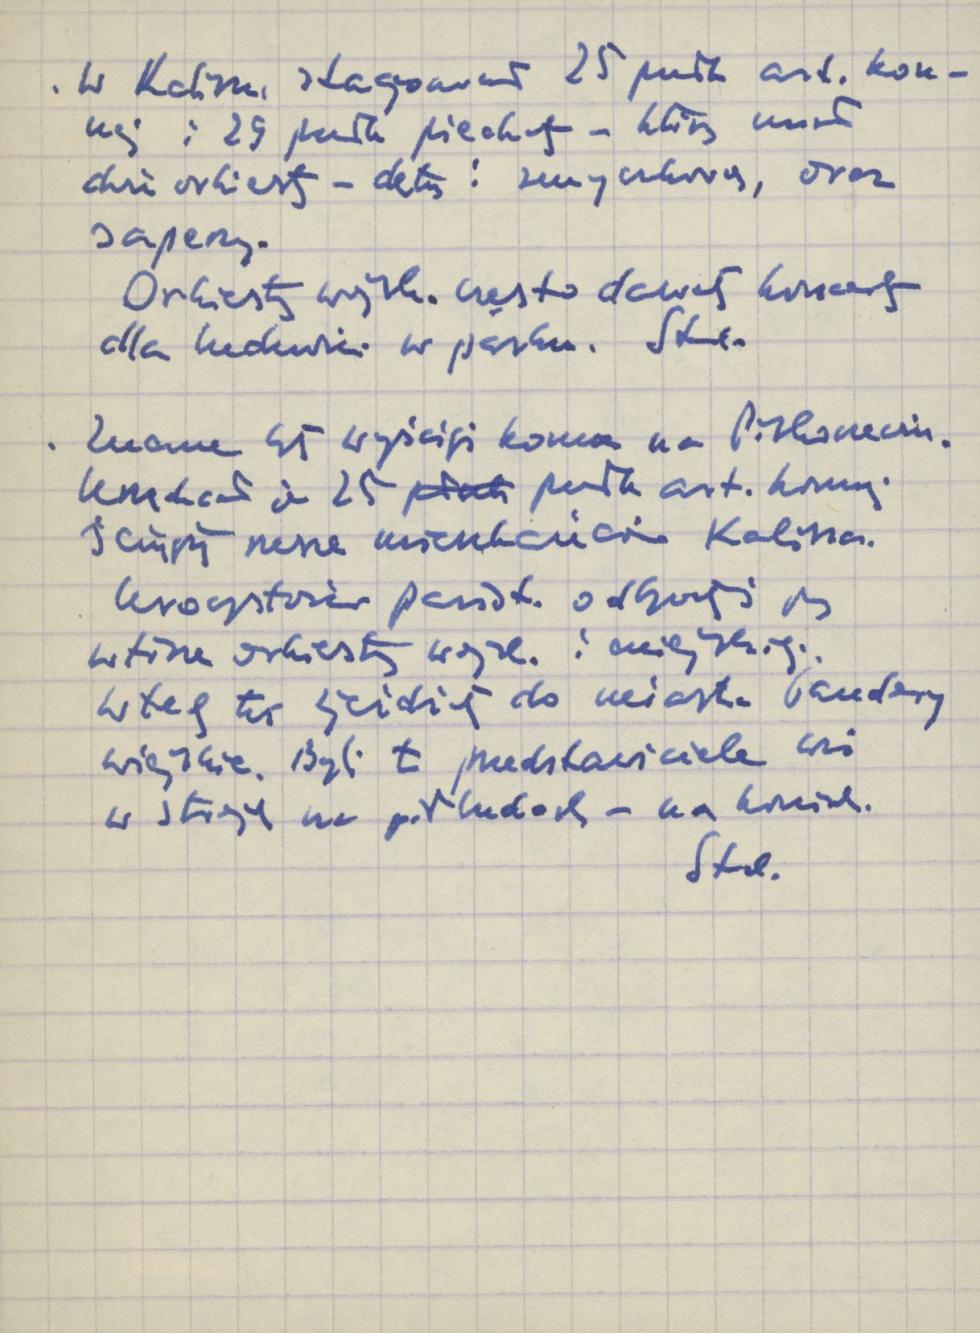 . W Kaliszu stacjonował 25 pułk art. kon-
nej i 29 pułk piechoty – który miał
dwie orkiestry – dętą i smyczkową, oraz
saperzy.
Orkiestry wojsk. często dawały koncerty
dla ludności w parku. Stul.
. Znane były wyścigi konne na Piskorzewiu.
Urządzał je 25 pułk art. konnej.
Ściągały rzesze mieszkańców Kalisza.
Uroczystości państ. odbywały się
wtórze orkiestry wojsk. i miejskiej.
Wtedy też zjeżdżały do miasta banderie
wiejskie. Byli to przedstawiciele wsi
w strojach ludowych – na koniach.